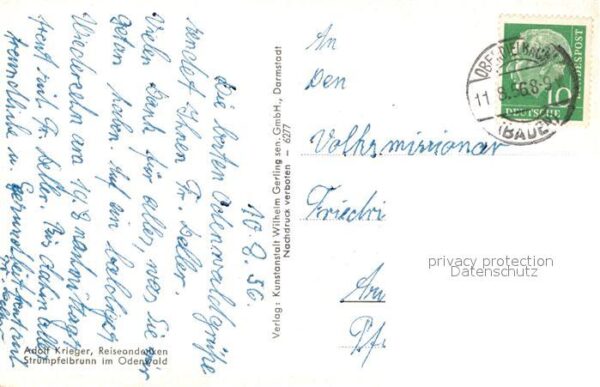 10.8.56.
Die besten Odenwaldgrüße
sendet Ihnen Fr. Seller.
Vielen Dank für alles, was Sie mir
getan haben. Auf ein baldiges
Wiedersehn am 19.8 nachmittags
freut sich Fr. Seller. Bis dahin alles
freundliche u. Gesundheit
Fr. Seller
Adolf Krieger, Reiseandenken
Strümpfelbrunn im Odenwald
Verlag: Kunstanstalt Wilhelm Gerling sen. GmbH., Darmstadt
Nachdruck verboten – 6277
An
Den
Volksmissionar
Friedri
privacy protection
Datenschutz
Pf.
11.8.56.8-
(BADEN)
DEUTSCHE
BUNDESPOST
10